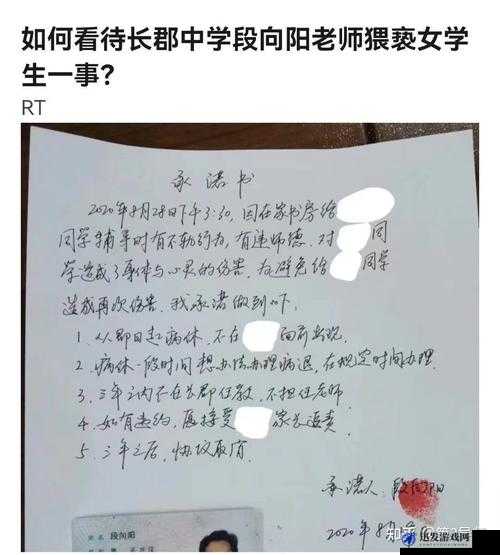 如何看待长郡中学段向阳老师猥亵女学
生一事?
RT
承诺书
2020年8月28日下午3:30,因在家书房给
同学辅导时有不轨行为,有违师德,对 同
学造成了身体与心灵的伤害,为避免给 同学
造成再次伤害,我承诺做到以下:
1、从即日起病休,不在 面前出现
2、病休一段时间想办法办理病退,在规定时间办理
3、三年之内不在长郡任教,不担任老师
4、如有违约,愿接受 家长追责
5、三年之后,协议取消
承诺人:段向阳
2020年8月
姓名 段向阳
知乎
迅发游戏网